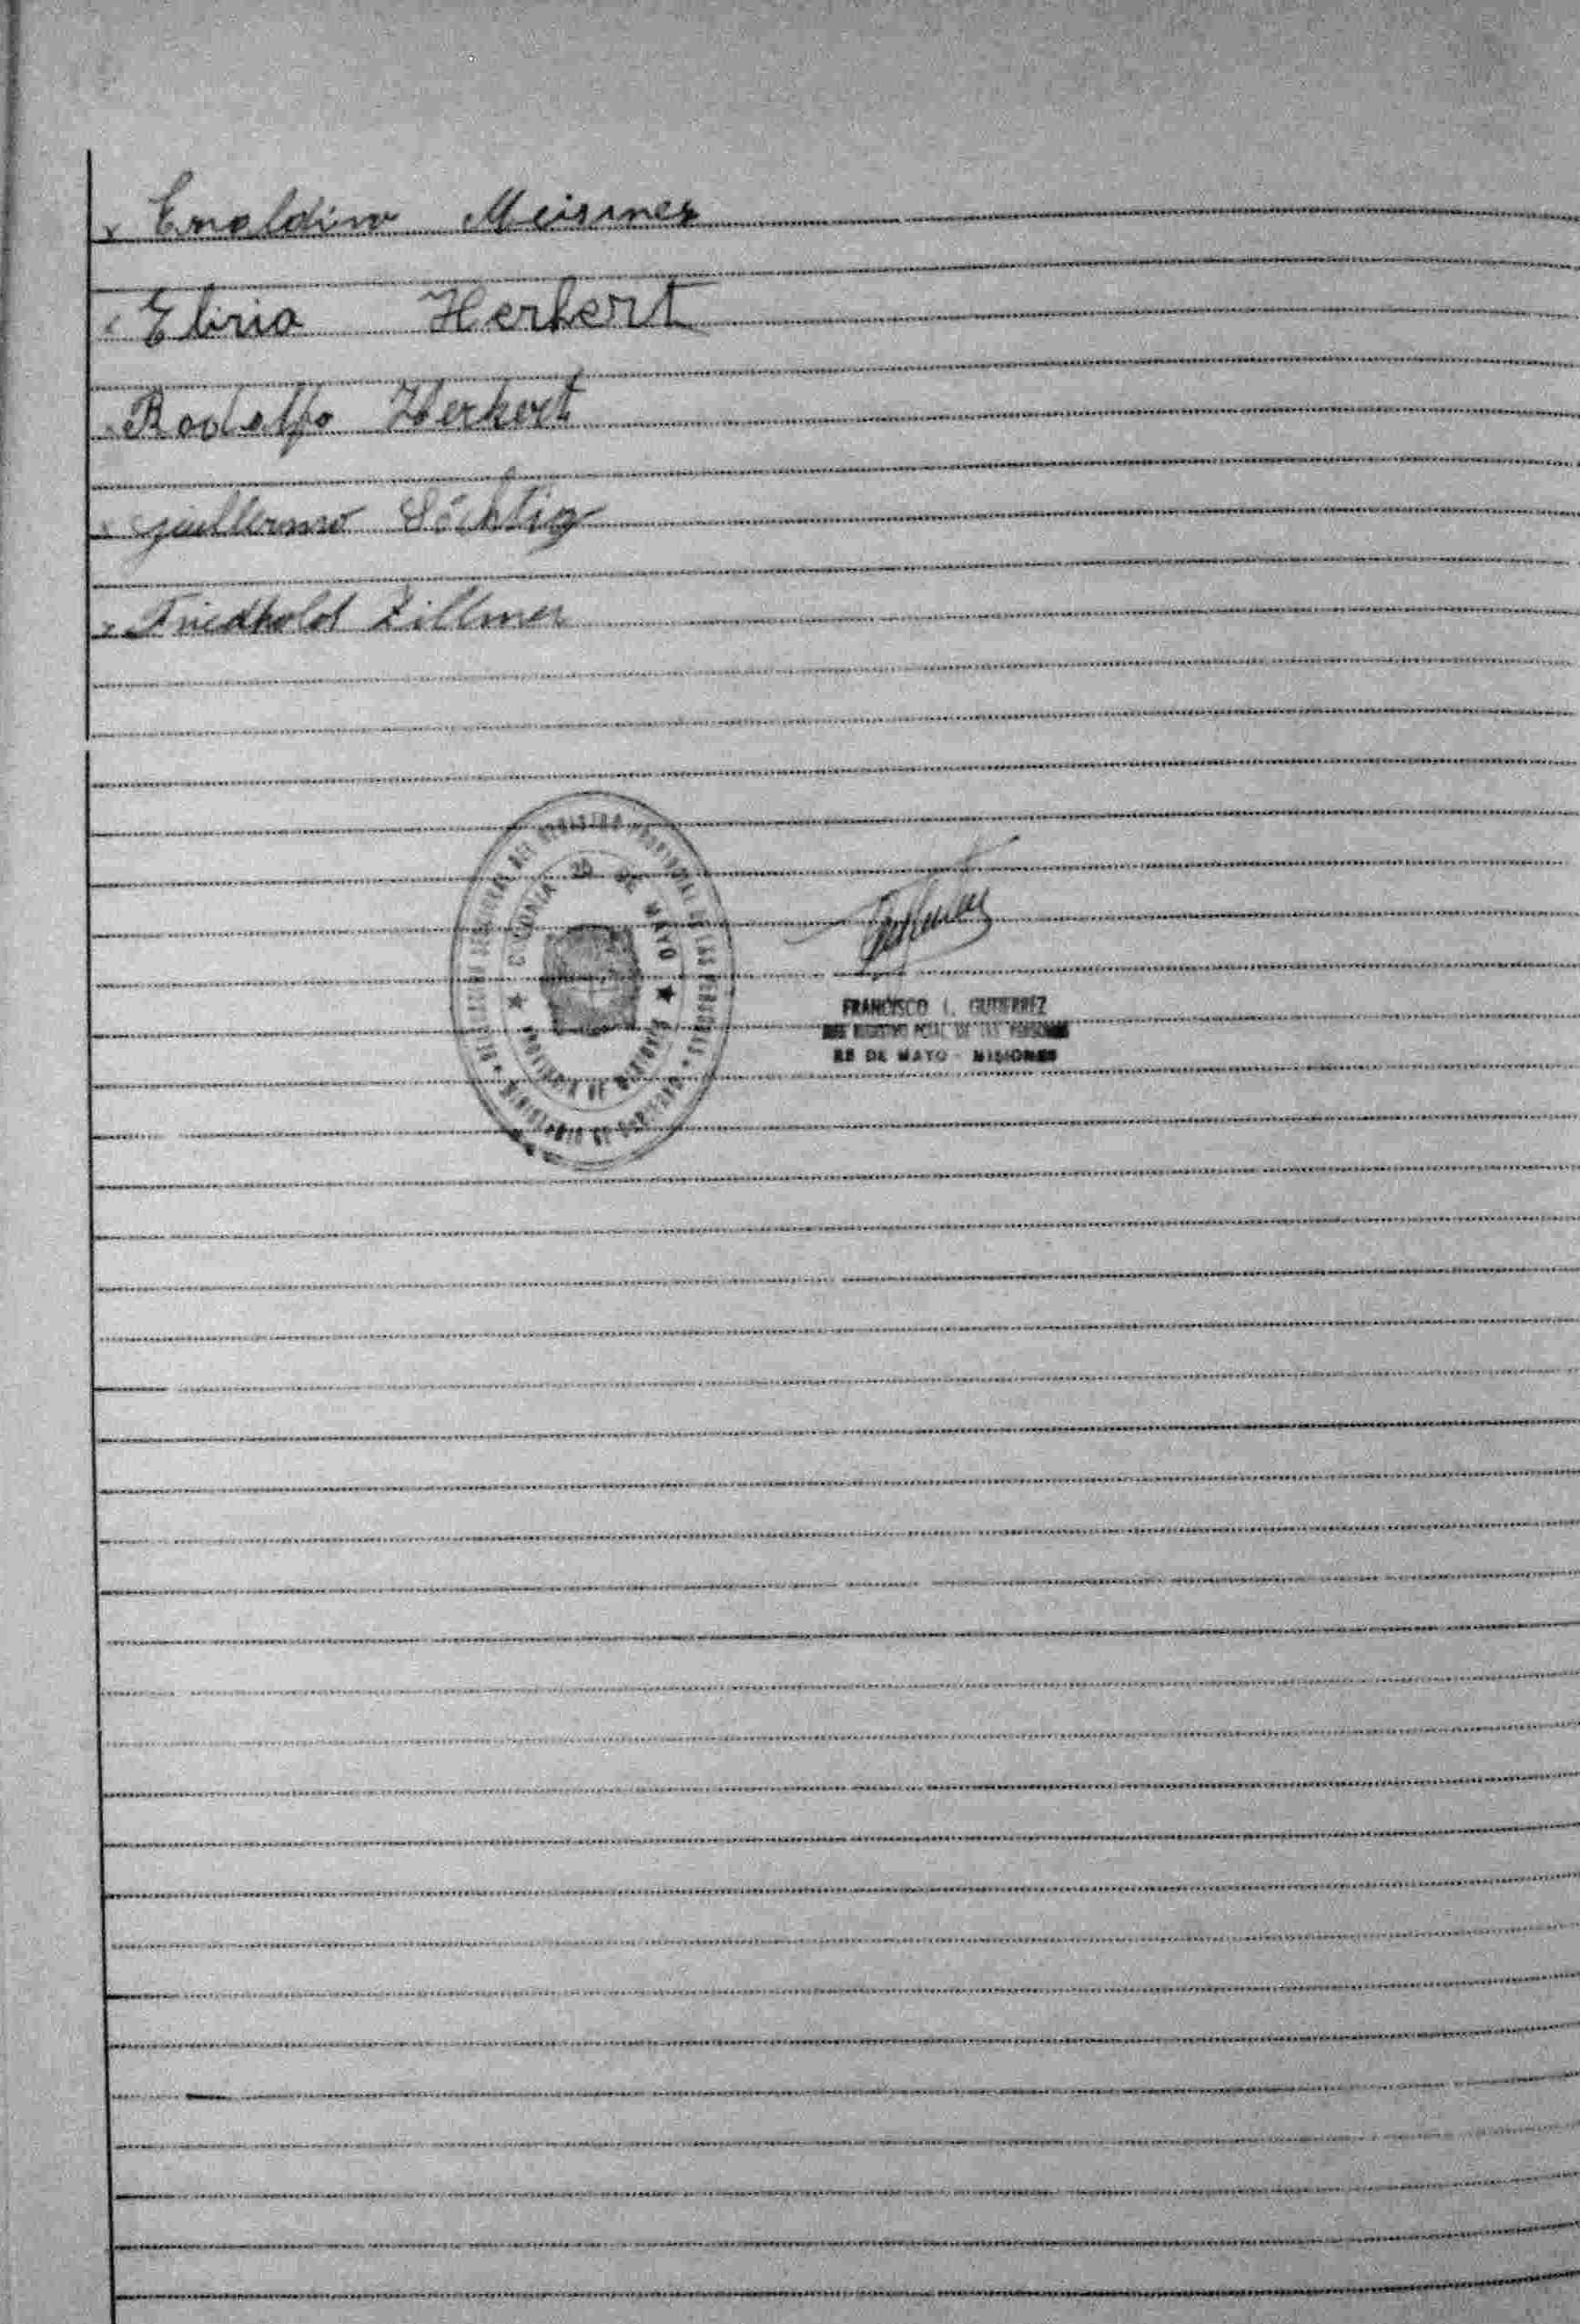 x Enaldino Meissner
x Eliria Herkert
x Rodolfo Herkert
x Guillermo Söchtig
x Friedholdt Zillmer
DELEGACION SECCIONAL DEL REGISTRO PROVINCIAL DE LAS PERSONAS
COLONIA 25 DE MAYO
PROVINCIA DE MISIONES
MINISTERIO DE GOBIERNO
FRANCISCO L. GUTIERREZ
REGISTRO PCIAL. DE LAS PERSONAS
25 DE MAYO - MISIONES